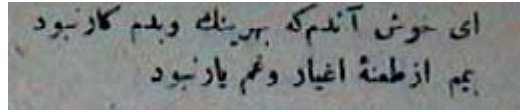 ای خوش آندم که بهرینك وبدم كار نبود
بیم از طعنهٔ اغیار وغم یار نبود